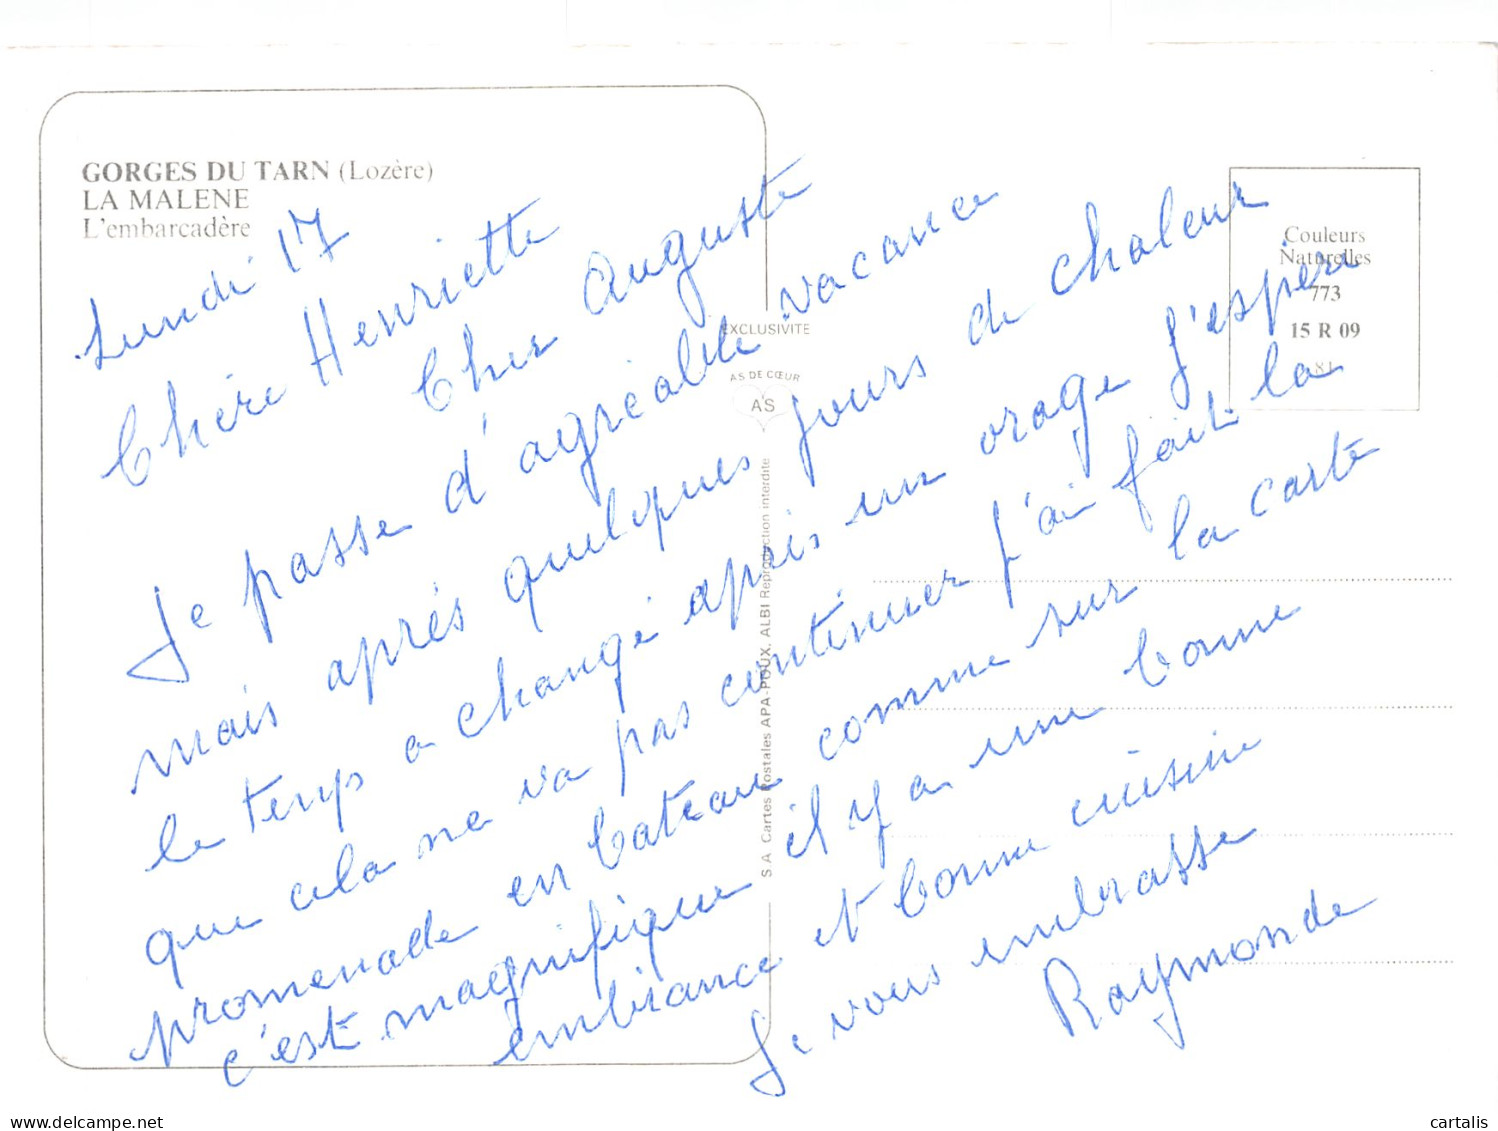 GORGES DU TARN (Lozère)
LA MALENE
L'embarcadère
Couleurs
Naturelles
773
15 R 09
81
EXCLUSIVITE
AS DE CŒUR
A'S
S A Cartes Postales APA-POUX. ALBI Reproduction interdite
Lundi 17
Chère Henriette
Cher Auguste
Je passe d'agréable vacance
mais après quelques jours de chaleur
le temps a changé après un orage j'espère
que cela ne va pas continuer j'ai fait la
promenade en bateau comme sur la carte
c'est magnifique il y a une bonne
embiance et bonne cuisine
Je vous embrasse
Raymonde
delcampe.net
cartalis